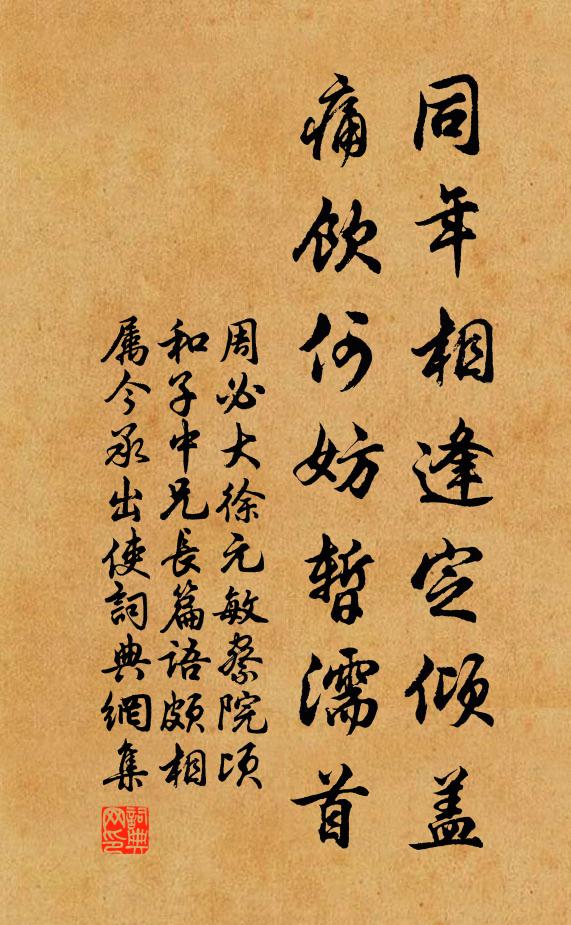 同年相逢定倾盖
痛饮何妨暂濡首
周必大徐元敏察院顷
和子中兄長篇語颇相
属今承出使詞典網集
詞典网印